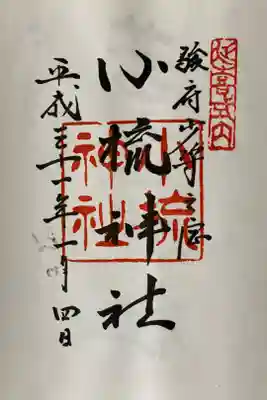 延喜式内
駿府少将
小梳神社
小梳神社
平成三十一年一月四日